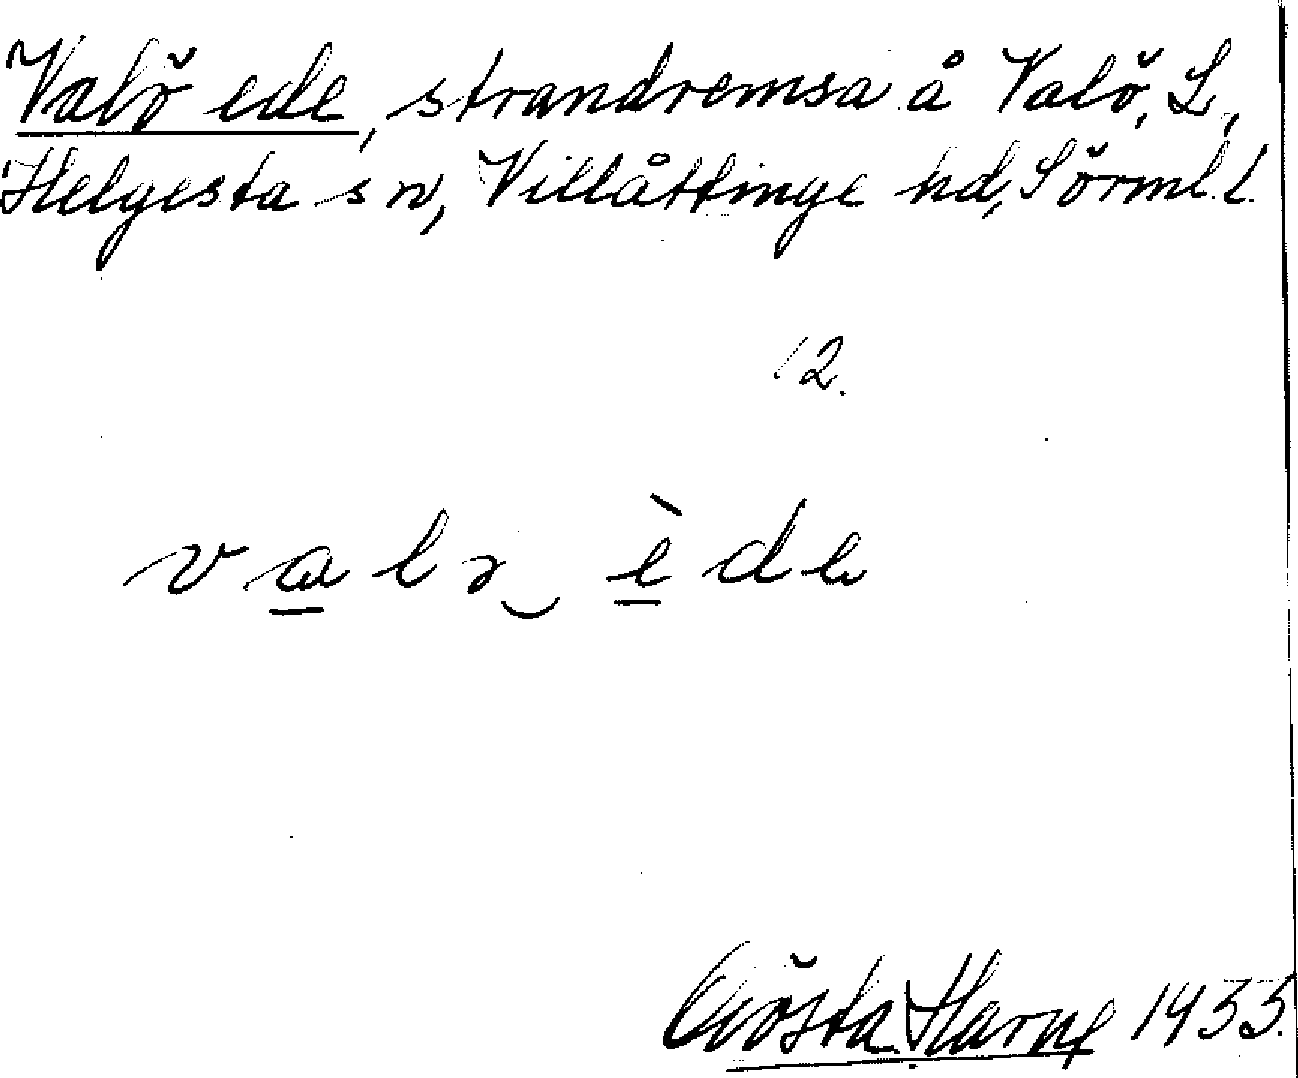 Valö ede, strandremsa å Valö, L.,
Helgesta sn, Villåttinge hd, Sörml. l.
12.
Gösta Harne 1933.